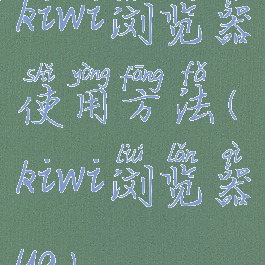 kiwi浏览器
shǐ yòng fāng fǎ
使用方法(
liú lǎn qì
kiwi浏览器